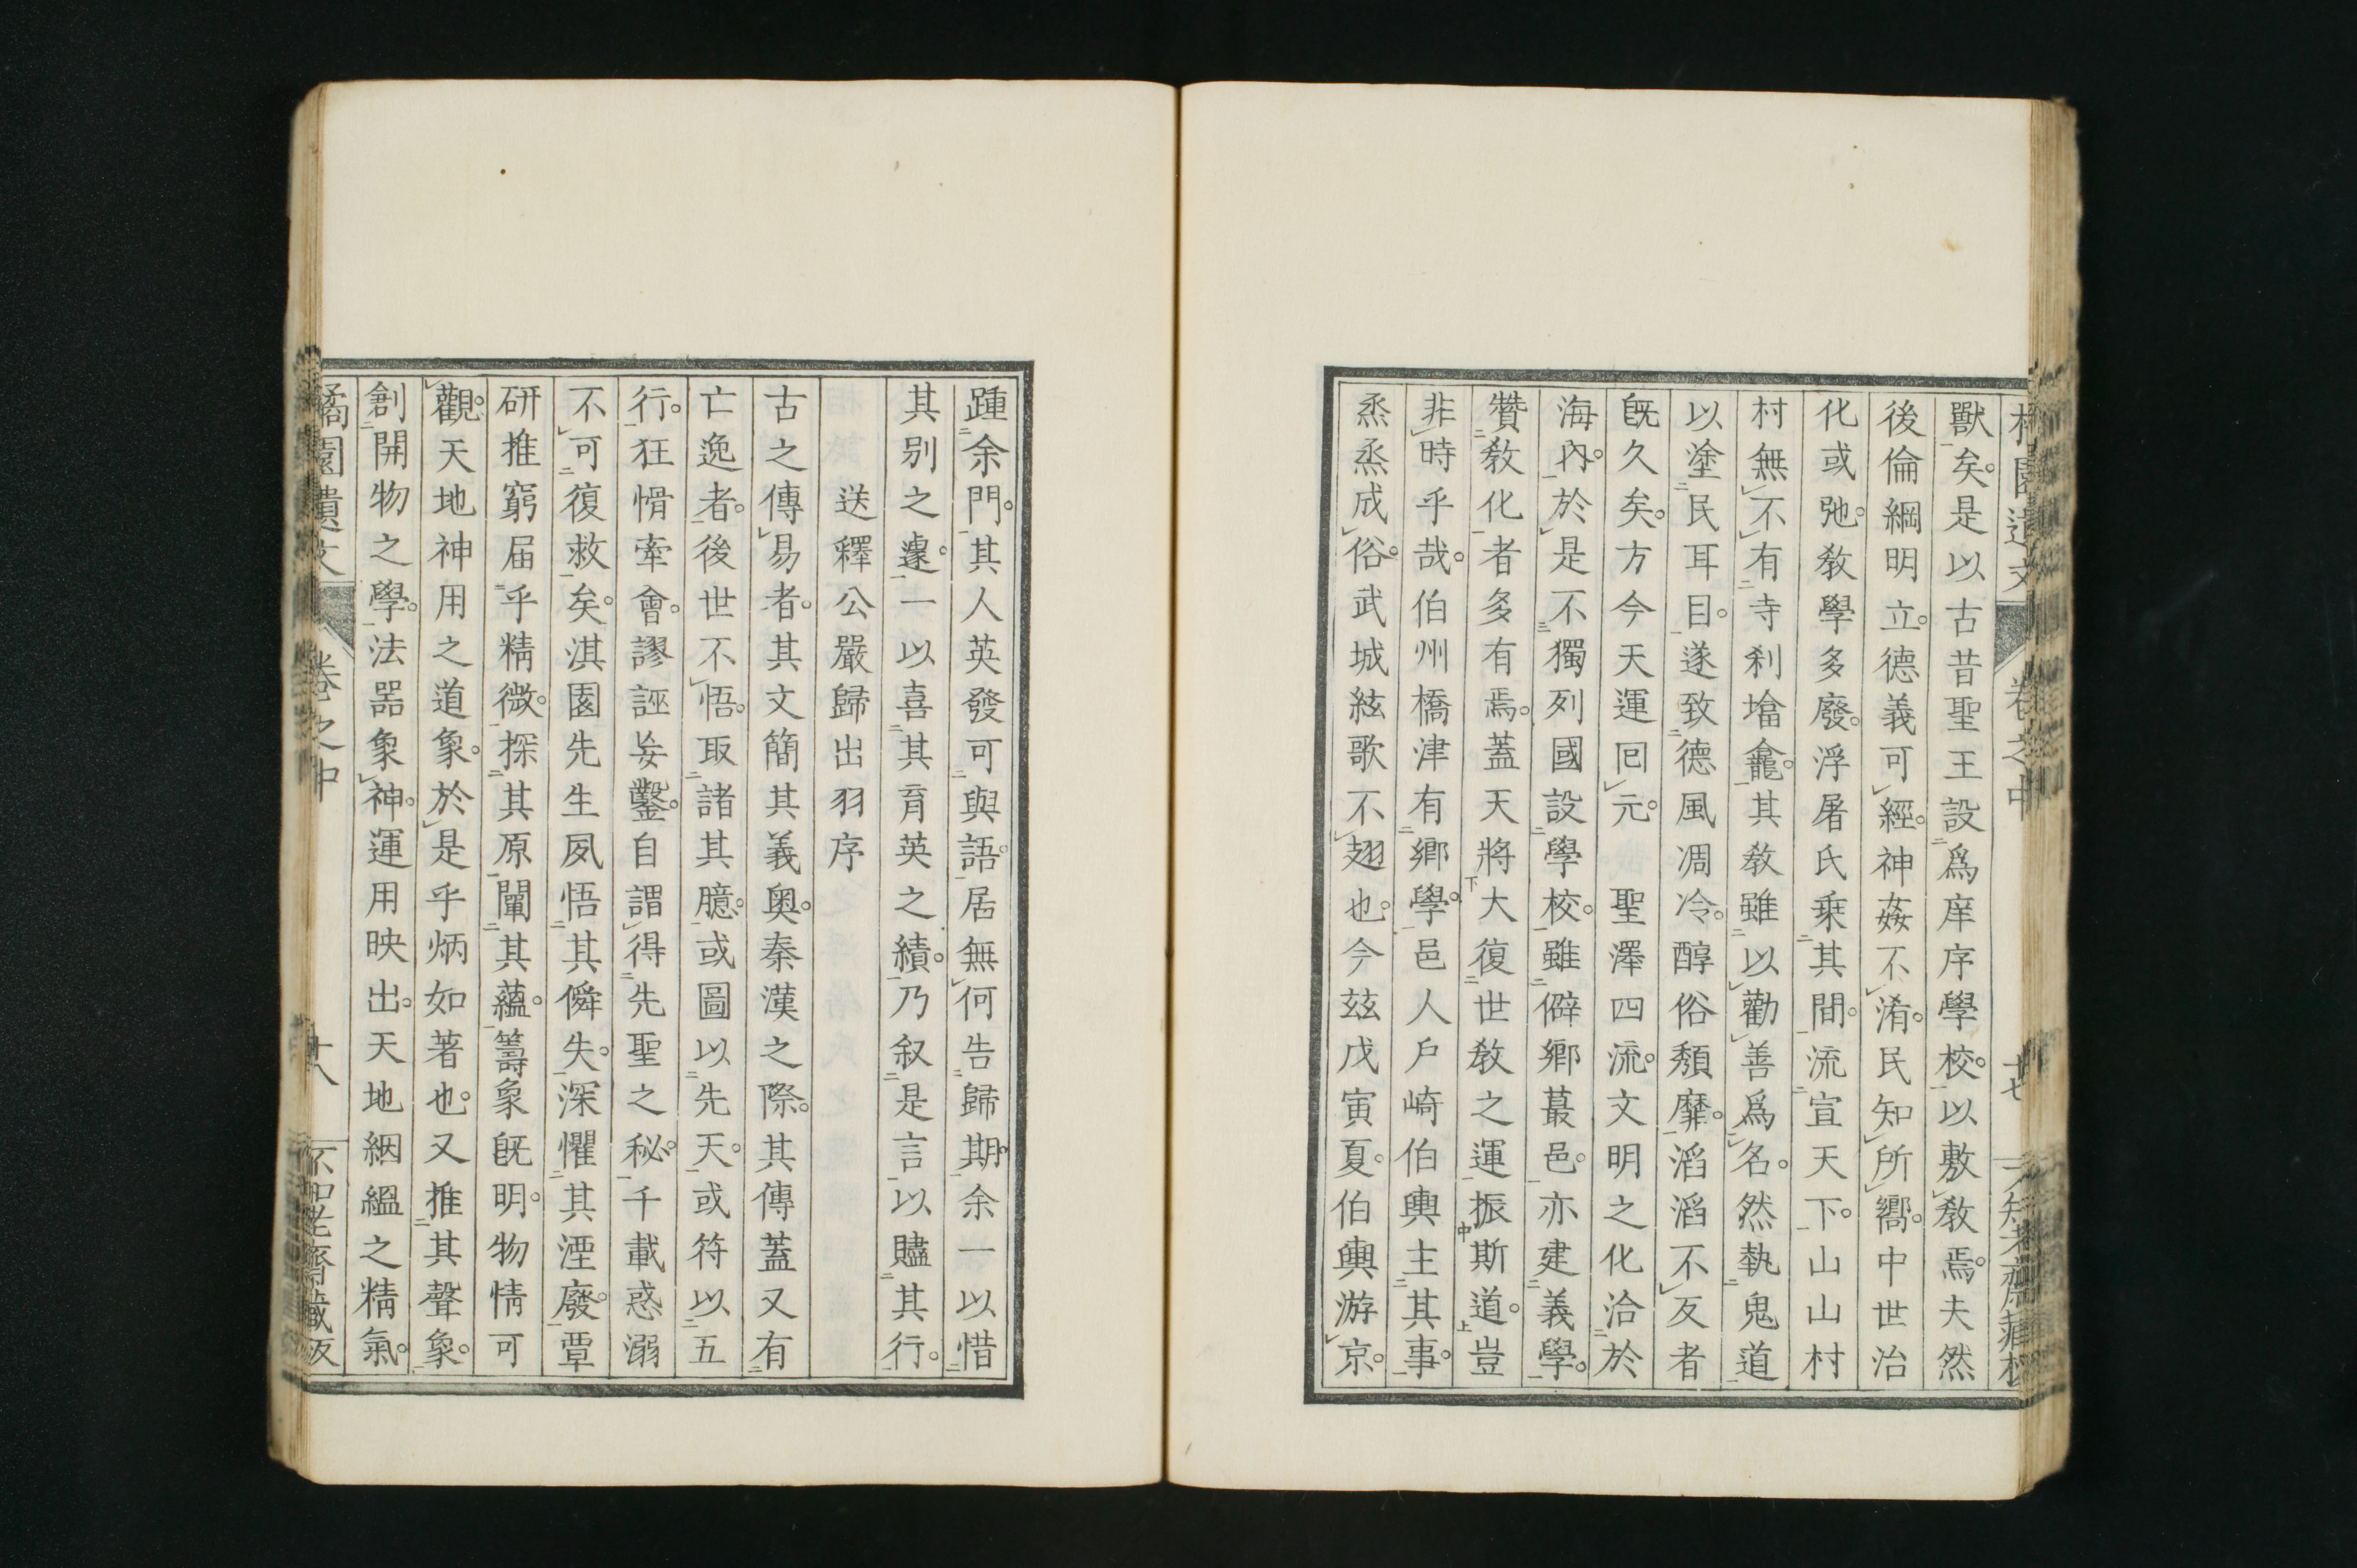 獸矣。是以古昔聖王設爲庠序學校。以敷教焉。夫然
後倫綱明立。德義可經。神姦不淆。民知所嚮。中世治
化或弛。教學多廢。浮屠氏乗其間。流宣天下。山山村
村無不有寺刹墖龕。其教雖以勸善爲名。然執鬼道
以塗民耳目。遂致德風凋冷。醇俗頽靡。滔滔不反者
既久矣。方今天運回元。聖澤四流。文明之化洽於
海內。於是不獨列國設學校。雖僻鄉蕞邑。亦建義學。
贊教化者多有焉。蓋天將大復世教之運振斯道。豈
非時乎哉。伯州橋津有鄉學。邑人戶崎伯輿主其事。
烝烝成俗。武城絃歌不翅也。今玆戊寅夏。伯輿游京。
踵余門。其人英發可與語。居無何告歸期。余一以惜
其别之遽。一以喜其育英之績。乃叙是言以贐其行。
送釋公嚴歸出羽序
古之傳易者。其文簡其義奧。秦漢之際。其傳蓋又有
亡逸者。後世不悟。取諸其臆。或圖以先天。或符以五
行。狂愲牽會。謬誣妄鑿。自謂得先聖之秘。千載惑溺
不可復救矣。淇園先生夙悟其僢失。深懼其湮廢。覃
研推窮届乎精微。探其原闡其蘊。籌象既明。物情可
觀。天地神用之道象。於是乎炳如著也。又推其聲象。
創開物之學。法噐象神。運用映出。天地絪縕之精氣。
卷之中
十八